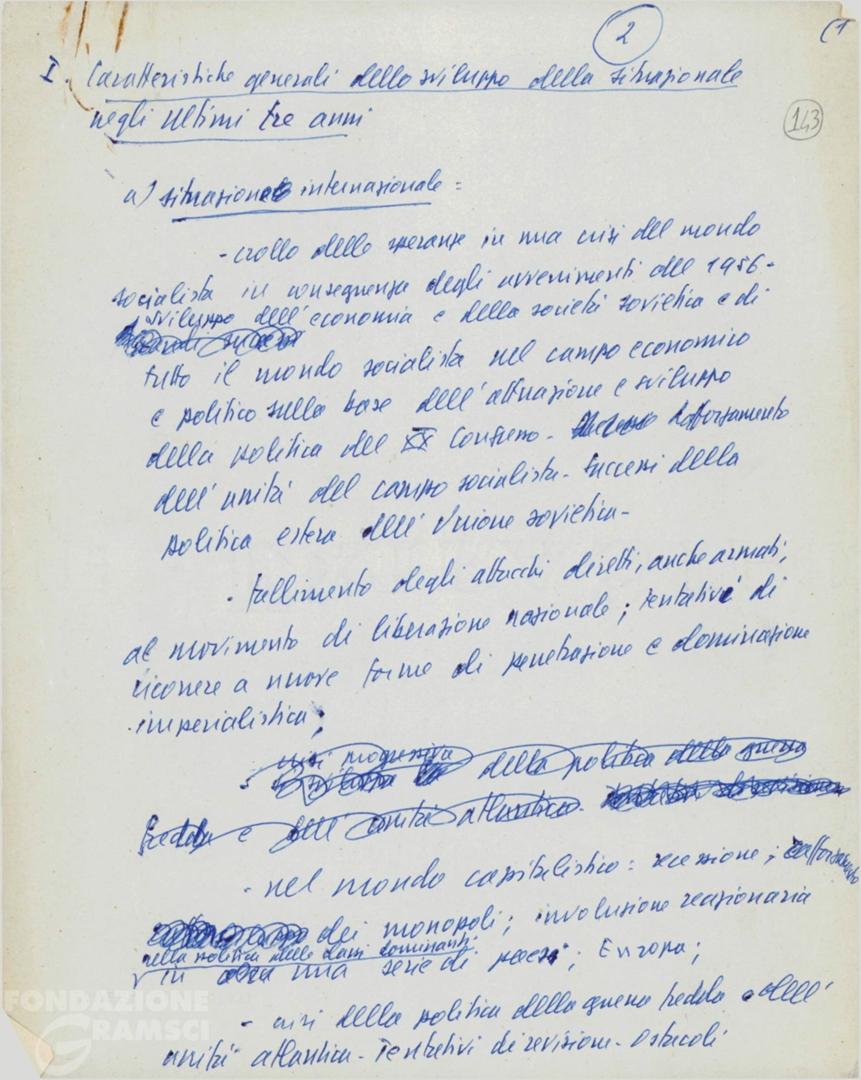 2
(1
I. Caratteristiche generali dello sviluppo della situazionale
negli ultimi tre anni
143
a) situazione internazionale =
- crollo delle speranze in una crisi del mondo
socialista in conseguenza degli avvenimenti del 1956 -
sviluppo dell'economia e della società sovietica e di
tutto il mondo socialista nel campo economico
e politico sulla base dell'attuazione e sviluppo
della politica del XX Congresso - Rafforzamento
dell'unità del campo socialista - Successi della
politica estera dell'Unione sovietica -
- fallimento degli attacchi diretti, anche armati,
al movimento di liberazione nazionale; tentativi di
ricorrere a nuove forme di penetrazione e dominazione
imperialistica;
- crisi progressiva
della politica della guerra
fredda e dell'unità atlantica -
- nel mondo capitalistico: recessione; rafforzamento
dei monopoli; involuzione reazionaria
nella politica delle classi dominanti
in una serie di paesi; Europa;
- crisi della politica della guerra fredda e dell'
unità atlantica - Tentativi di revisione - Ostacoli
FONDAZIONE
GRAMSCI